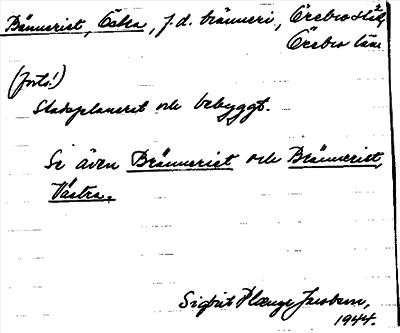 Bränneriet, Östra, f.d. bränneri, Örebro stad,
Örebro län
(forts.)
Stadsplanerat och bebyggt.
Se även Bränneriet och Bränneriet,
Västra.
Sigbrit Plænge Jacobson,
1944.